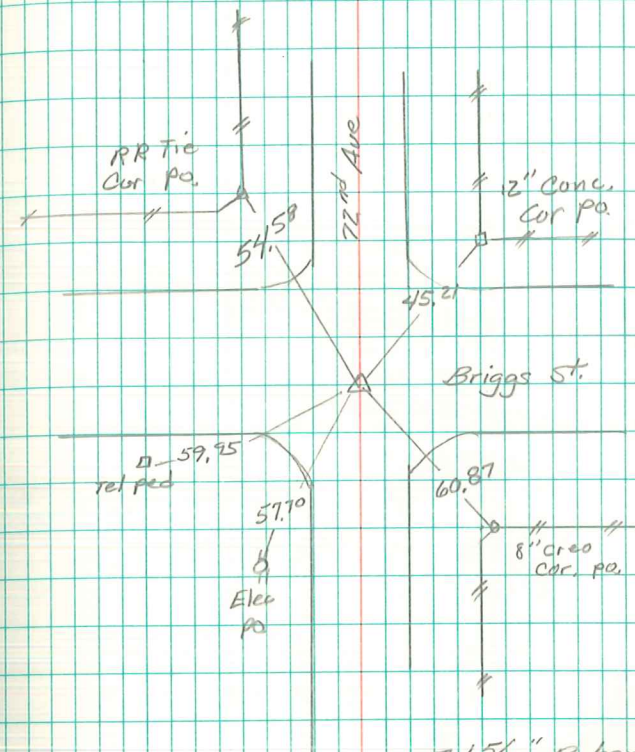 RR Tie
Cor po.
72nd Ave
12" Conc.
Cor po.
54.58
45.21
Briggs St.
59.95
Tel ped
60.87
57.70
8" creo
Cor. po.
Elec
po